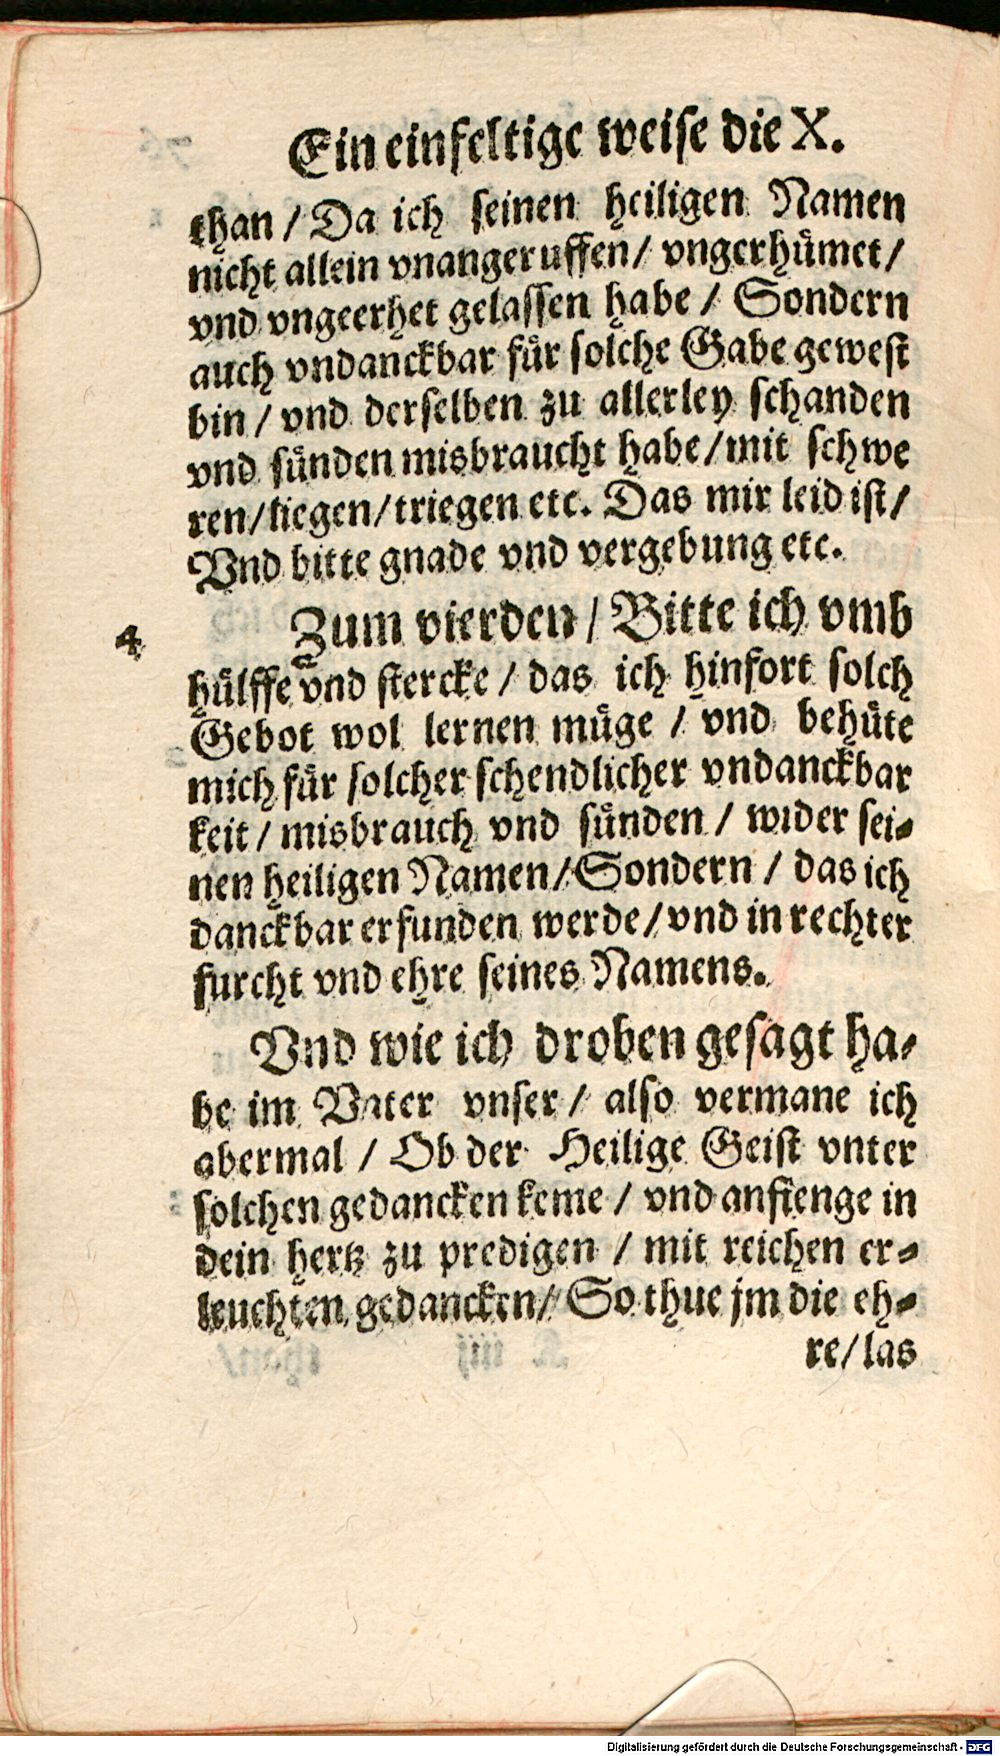 Ein einfeltige weise die X.
than / Da ich seinen heiligen Namen
nicht allein vnangeruffen / vngerhümet /
vnd vngeerhet gelassen habe / Sondern
auch vndanckbar für solche Gabe gewest
bin / vnd derselben zu allerley schanden
vnd sünden misbraucht habe / mit schwe
ren / liegen / triegen etc. Das mir leid ist /
Vnd bitte gnade vnd vergebung etc.
4 Zum vierden / Bitte ich vmb
hülffe vnd stercke / das ich hinfort solch
Gebot wol lernen müge / vnd behüte
mich für solcher schendlicher vndanckbar
keit / misbrauch vnd sünden / wider sei-
nen heiligen Namen / Sondern / das ich
danckbar erfunden werde / vnd in rechter
furcht vnd ehre seines Namens.
Vnd wie ich droben gesagt ha-
be im Vater vnser / also vermane ich
abermal / Ob der Heilige Geist vnter
solchen gedancken keme / vnd anfienge in
dein hertz zu predigen / mit reichen er-
leuchten gedancken / So thue jm die eh-
re / las
Digitalisierung gefördert durch die Deutsche Forschungsgemeinschaft - DFG